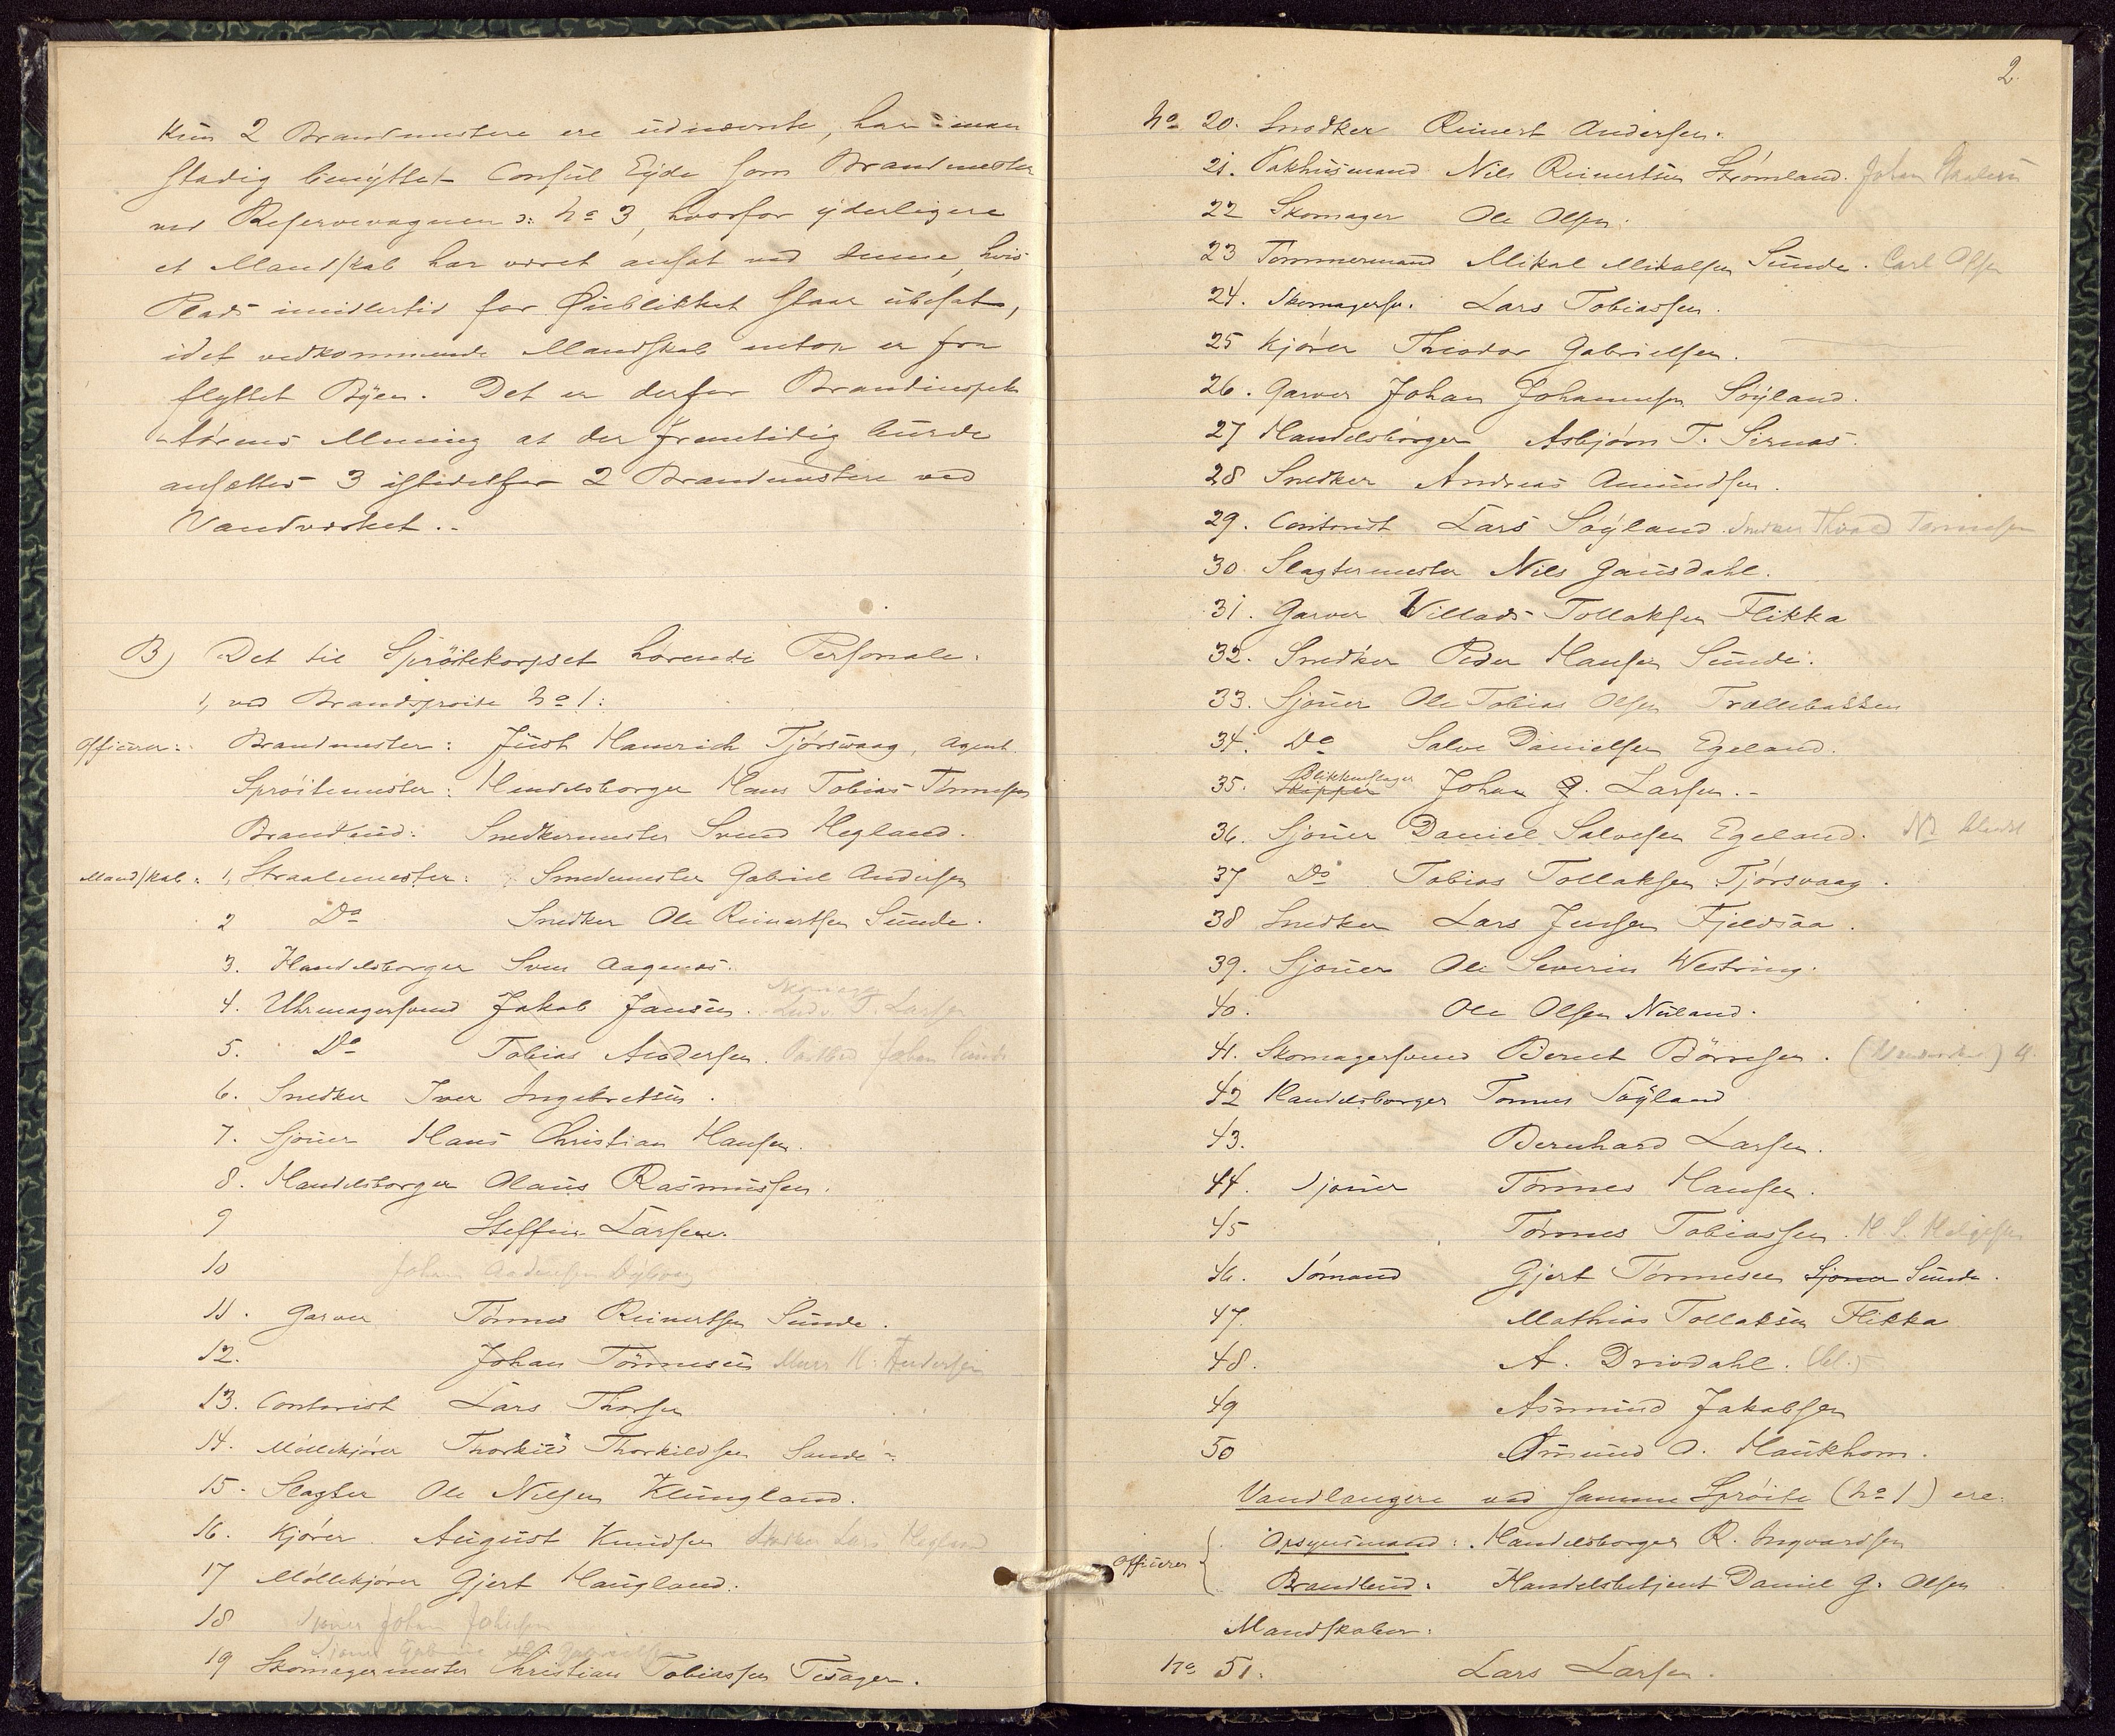 Kun 2 Brandmestere ere udnævnte, har man
stadig benyttet Consul Eyde som Brandmester
ved Reservevognen ɔ: No 3, hvorfor yderligere
et Mandskab har været ansat ved denne, hvis
Plads imidlertid for Øieblikket staar ubesat,
idet vedkommende Mandskab netop er fra
flyttet Byen. Det er derfor Brandinspek
tørens Mening at der fremtidig burde
ansættes 3 istedetfor 2 Brandmestere ved
Vandværket.
B) Det til Sprøitekorpset hørende Personale.
1, ved Brandsprøite No 1:
Officierer: Brandmester: Just Hamrich Tjørsvaag, Agent.
Sprøitemester: Handelsborger Hans Tobias Tønnesen
Brandleud: Snedkermester Svend Hegland.
Mandskab: 1, Straalemester: Smedmester Gabriel Andersen
2 Do Snedker Ole Reinertsen Sunde.
3. Handelsborger Sven Aagenæs.
Skomager
4. Uhrmagersvend Jakob Jansen. Ludv. T. Larsen
5. Do Tobias Andersen. Johan Sunde
6. Snedker Iver Ingebretsen.
7. Sjouer Hans Christian Hansen.
8. Handelsborger Olaus Rasmussen.
9 Steffen Larsen.
10 Johan
11. Garver Tønnes Reinertsen Sunde.
12. Johan Tønnesen Murer H. Andersen
13. Contorist Lars Thorsen
14. Møllekjører Thorkild Thorkildsen Sande
15. Slagter Ole Nilsen Klungland.
16. Kjører. August Knudsen Snedker Lars Hegland
17 Møllekjører Gjert Haugland.
18 Sjouer Johan
Sjouer Gabriel Gabrielsen
19 Skomagermester Christian Tobiassen Tesager.
2
No 20. Snedker Reinert Andersen.
21. Pakhusmand Nils Reinertsen Strømland. Johan
22 Skomager Ole Olsen.
23 Tømmermand Mikal Mikalsen Sunde. Carl Olsen
24. Skomagersv. Lars Tobiassen.
25 Kjører Theodor Gabrielsen.
26. Garver Johan Johannesen Søyland.
27 Handelsborger Asbjørn T. Sirnæs.
28 Snedker Andreas Amundsen.
29. Contorist Lars Søyland. Snedker Tønnesen
30. Slagtermester Nils Gausdahl.
31. Garver Villads Tollaksen Flikka
32. Snedker Peder Hansen Sunde.
33. Sjouer Ole Tobias Olsen Trællebakken
34. Do Salve Danielsen Egeland.
Blikkenslager
35. Skipper Johan G. Larsen.
36. Sjouer Daniel Salvesen Egeland.
37 Do Tobias Tollaksen Tjørsvaag.
38 Snedker Lars Jensen Fjeldsaa.
39. Sjouer Ole Severin Westring.
40. Ole Olsen Nuland.
41. Skomagersvend Bernt Børresen.
42 Handelsborger Tønnes Søyland
43. Bernhard Larsen.
44. Sjouer Tønnes Hansen.
45 Tønnes Tobiassen. H. S. Helgesen
46. Sømand Gjert Tønnesen Sjouer Sunde.
47. Mathias Tollaksen Flikka
48. A. Drivdahl.
49 Asmund Jakobsen
50 Amund O. Haukhom.
Vandlangere ved samme Sprøite (No 1) ere:
Officierer Opsynsmand: Handelsborger R. Ingvardsen
Brandleud: Handelsbetjent Daniel G. Olsen
Mandskaber:
No 51. Lars Larsen.